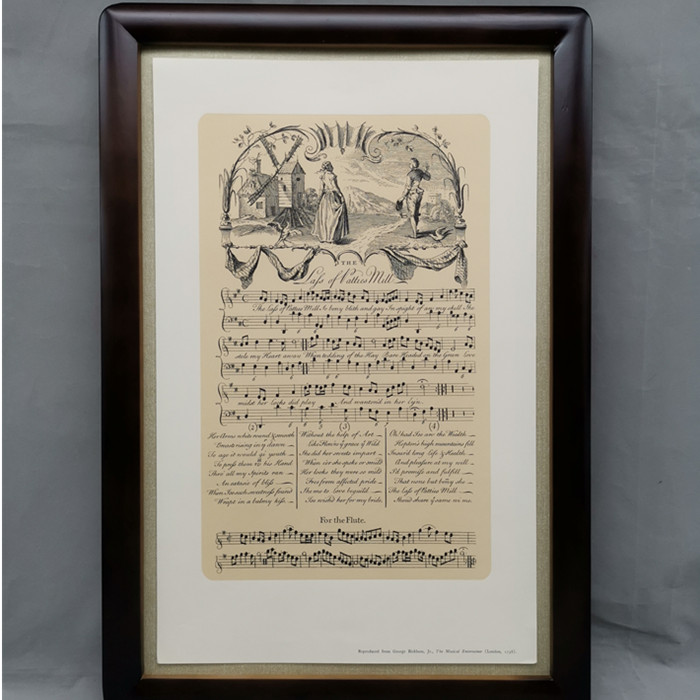 THE
Lass of Patties Mill
The Lass of Patties Mill So bony blith and gay In spight of my skill She
stole my Heart away When tedding of the Hay Bare Headed on the Green love
midst her locks did play And wanton'd in her Eyn
(2) (3) (4)
Her Arms white round & smooth
Breasts rising in y^e dawn
To age it would give youth
To press them w^th his Hand
Thro' all my Spirits ran
An extasie of bliss
When I such sweetness found
Wrapt in a balmy kiss
Without the help of Art
Like flow'rs y^t grace y^e Wild
She did her sweets impart
When e'er she spoke or smil'd
Her looks they were so mild
Free from affected pride
She me to love beguil'd
I wish'd her for my bride
Oh had I in one the Wealth
Hopton's high mountains fill
Insur'd long Life & Health
And pleasure at my will
I'd promise and fulfill
That none but bony she
The Lass of Patties Mill
Shou'd share y^e same wi me
For the Flute.
Reproduced from George Bickham, Jr., The Musical Entertainer (London,